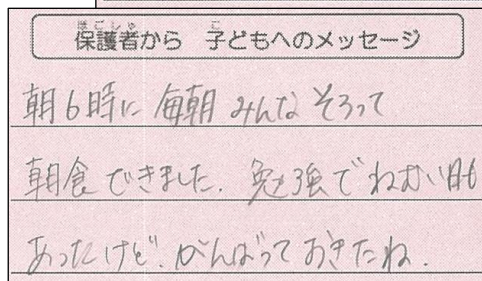 保護者から 子どもへのメッセージ
朝6時に 毎朝 みんな そろって
朝食 できました. 勉強で ねむい日も
あったけど. がんばって おきたね.